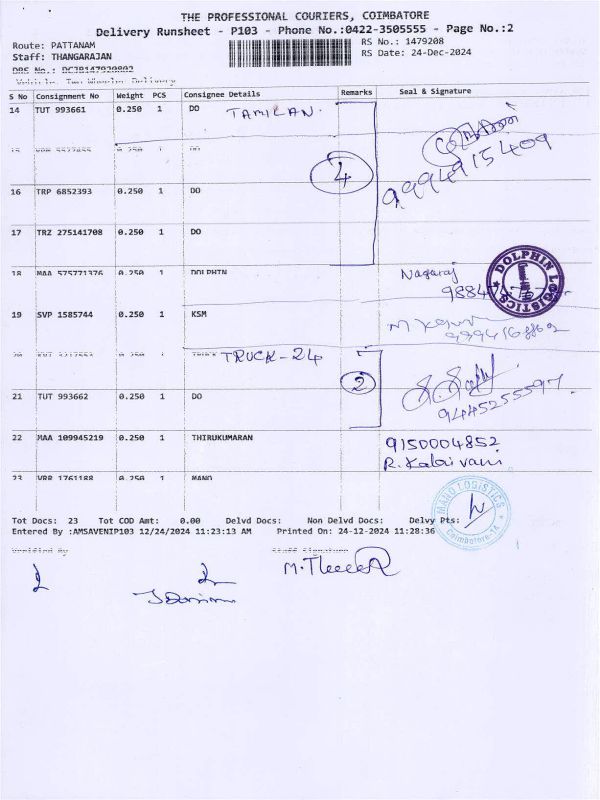 THE PROFESSIONAL COURIERS, COIMBATORE
Delivery Runsheet - P103 - Phone No.:0422-3505555 - Page No.:2
Route: PATTANAM
RS No.: 1479208
Staff: THANGARAJAN
RS Date: 24-Dec-2024
S No Consignment No Weight PCS Consignee Details Remarks Seal & Signature
14 TUT 993661 0.250 1 DO TAMILAN.
9994915409
4
16 TRP 6852393 0.250 1 DO
17 TRZ 275141708 0.250 1 DO
18 MAA 575771376 0.250 1 DOLPHIN Nagaraj
DOLPHIN LOGISTICS
19 SVP 1585744 0.250 1 KSM
20 TRUCK-24
2
21 TUT 993662 0.250 1 DO
9445255597
22 MAA 109945219 0.250 1 THIRUKUMARAN 9150004852
R. Kalaivani
23 VRR 1761188 0.250 1 MANO
MANO LOGISTICS
Coimbatore-14
Tot Docs: 23 Tot COD Amt: 0.00 Delvd Docs: Non Delvd Docs: Delvy Pts:
Entered By :AMSAVENIP103 12/24/2024 11:23:13 AM Printed On: 24-12-2024 11:28:36
Verified By Staff Signature